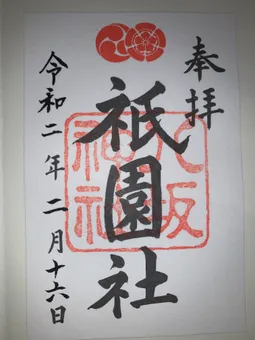 奉拝
祇園社
八坂神社
令和二年二月十六日